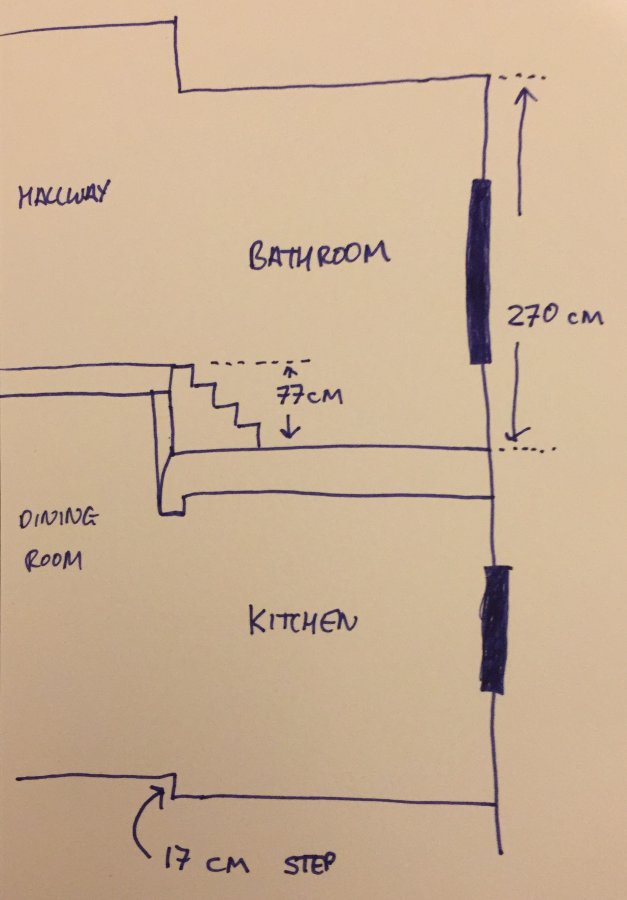 HALLWAY
BATHROOM
270 CM
77CM
DINING
ROOM
KITCHEN
17 CM STEP